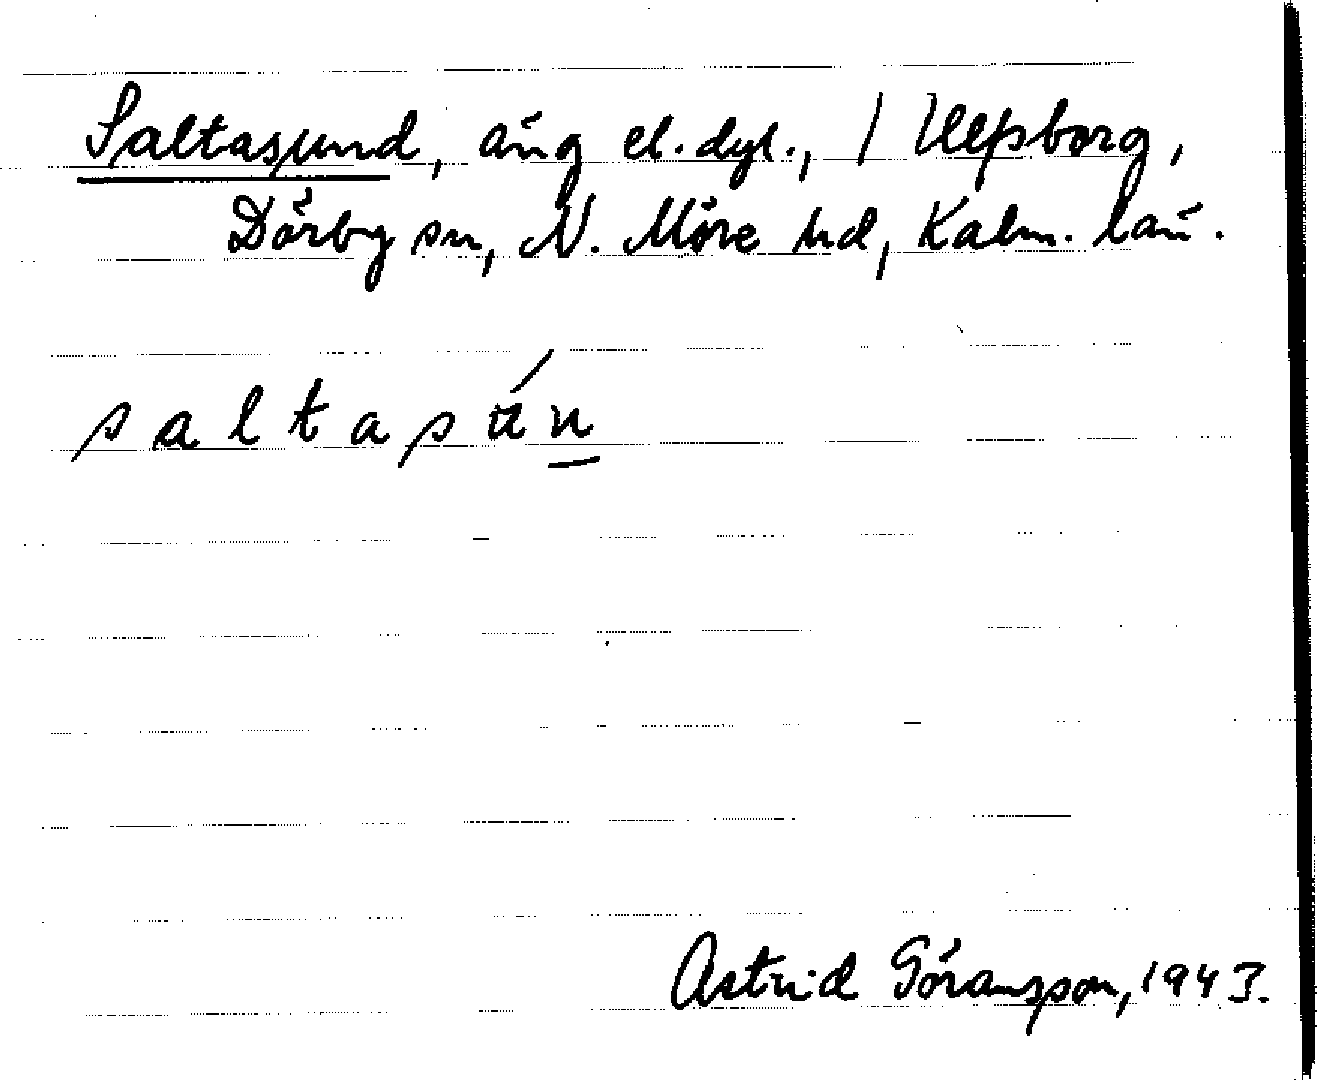 Saltasund, äng el. dyl., / Ulfsborg,
Dörby sn, N. Möre hd, Kalm. län.
saltasún
Astrid Göransson, 1943.